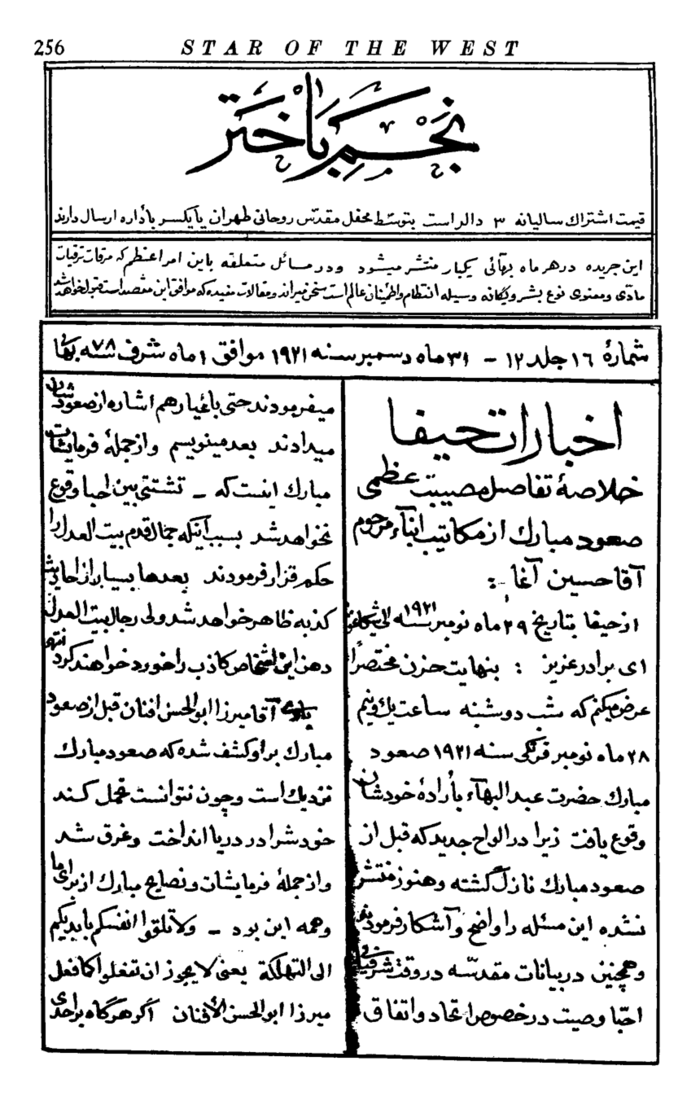 256 STAR OF THE WEST
نجم باختر
قیمت اشتراك سالیانه ۳ دالر است بتوسّط محفل مقدّس روحانی طهران یا یکسر بأداره ارسال دارند
این جریده در هر ماه بهائی یکبار منتشر میشود و در مسائل متعلقه باین امر اعظم که مرقات ترقیات
مادّی و معنوی نوع بشر و یگانه وسیله انتظام و اطمینان عالم است سخن میراند و مقالات مفیده که موافق این مقصد است قبول خواهد شد
شمارهٔ ۱۶ جلد ۱۲ – ۳۱ ماه دسمبر سنه ۱۹۲۱ موافق ۱ ماه شرف سنه ۷۸ بها
اخبارات حیفا
خلاصهٔ تفاصیل مصیبت عظمی
صعود مبارك از مکاتیب ابناء مرحوم
آقا حسین آغا :
از حیفا بتاریخ ۲۹ ماه نومبر سنه ۱۹۲۱ الی شیکاغو
ای برادر عزیز : بنهایت حزن مختصراً
عرض میکنم که شب دوشنبه ساعت یك و نیم
۲۸ ماه نومبر فرنگی سنه ۱۹۲۱ صعود
مبارك حضرت عبد البهآء بأرادهٔ خودشان
وقوع یافت زیرا در الواح جدید که قبل از
صعود مبارك نازل گشته و هنوز منتشر
نشده این مسئله را واضح و آشکار فرمودند
و همچنین در بیانات مقدّسه در وقت تشرف یابی
احبا وصیت در خصوص اتحاد و اتفاق
میفرمودند حتی باغیار هم اشاره از صعودشان
میدادند بعد مینویسم و از جملهٔ فرمایشات
مبارك اینست که – تشتّتی بین احبا وقوع
نخواهد شد بسبب آنکه جمالقدم بیت العدل را
حکم قرار فرمودند بعدها بسیار ارٔاجایف
کذبه ظاهر خواهد شد ولی رجال بیت العدل
دهن این اشخاص کاذب را خورد خواهند کرد انتهی
باری آقا میرزا ابو الحسن افنان قبل از صعود
مبارك بر او کشف شده که صعود مبارك
نزدیك است و چون نتوانست تحمل کند
خودشرا در دریا انداخت و غرق شد
و از جملهٔ فرمایشات و نصایح مبارك از برای ما
و همه این بود – ولا تلقوا انفسکم بایدیکم
الی التهلکة یعنی لا یجوز ان تفعلوا کما فعل
میرزا ابو الحسن الأفنان اگر هر گاه براحدی